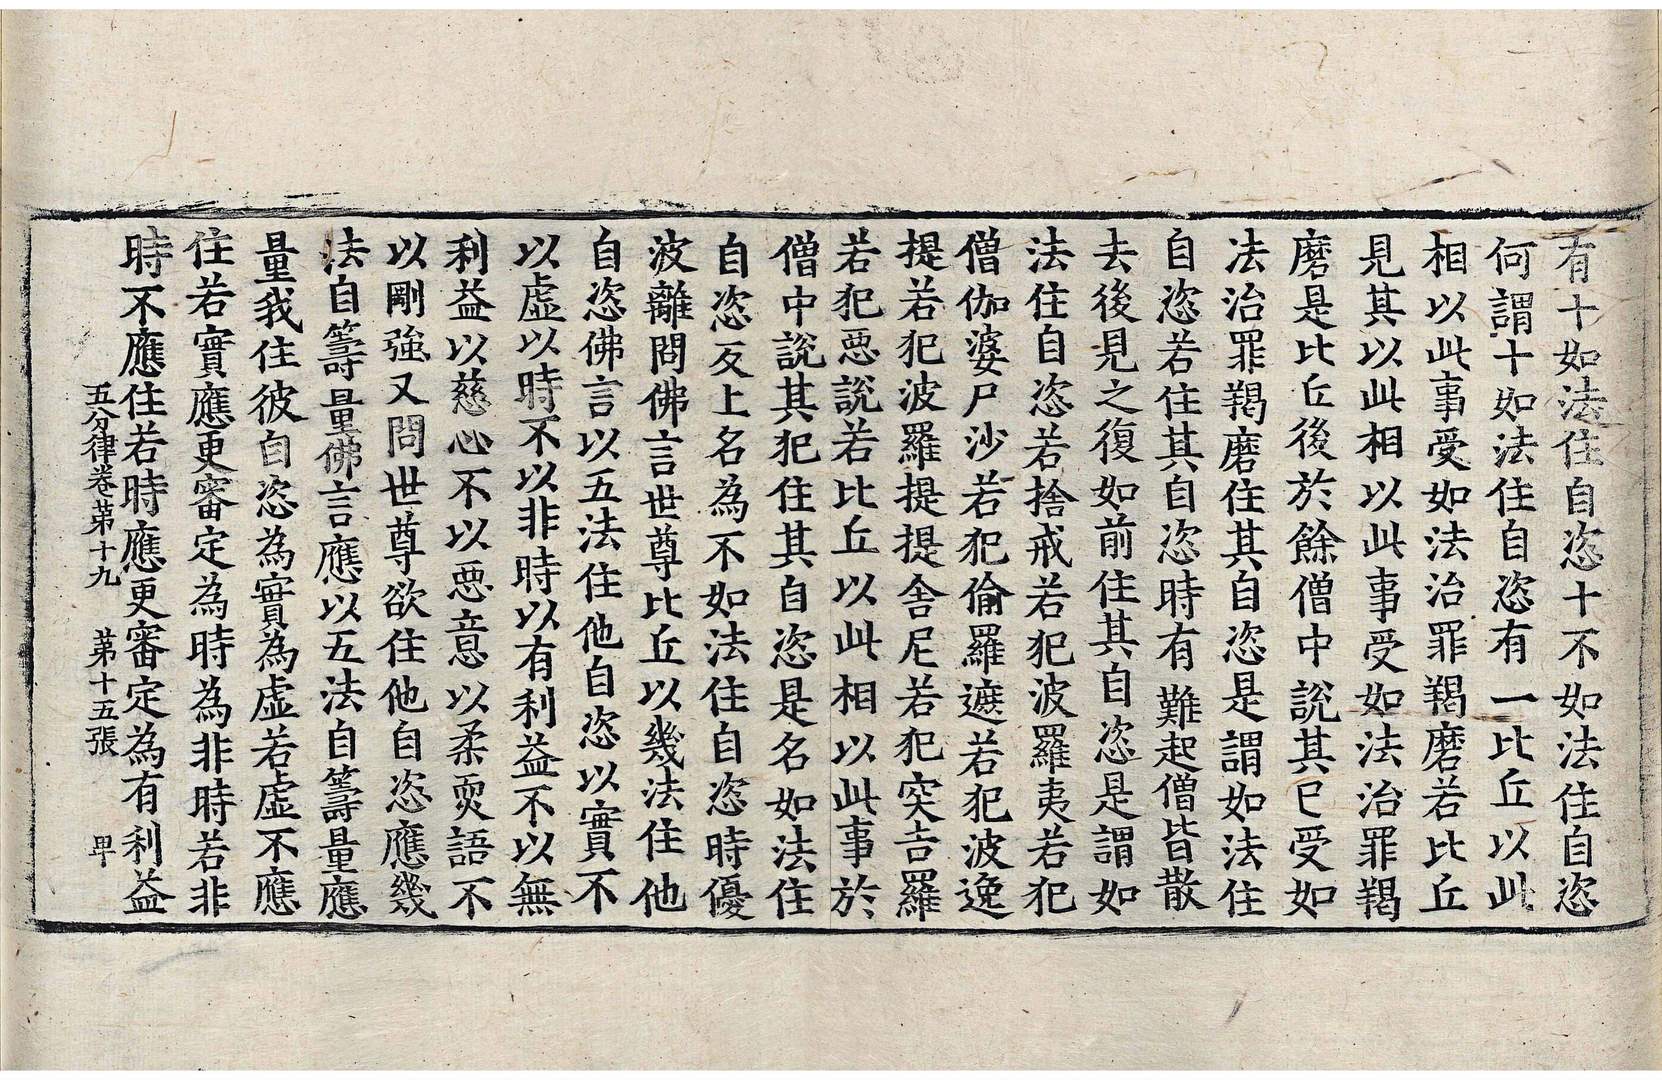 有十如法住自恣十不如法住自恣
何謂十如法住自恣有一比丘以此
相以此事受如法治罪羯磨若比丘
見其以此相以此事受如法治罪羯
磨是比丘後於餘僧中說其已受如
法治罪羯磨住其自恣是謂如法住
自恣若住其自恣時有難起僧皆散
去後見之復如前住其自恣是謂如
法住自恣若捨戒若犯波羅夷若犯
僧伽婆尸沙若犯偷羅遮若犯波逸
提若犯波羅提提舍尼若犯突吉羅
若犯惡說若比丘以此相以此事於
僧中說其犯住其自恣是名如法住
自恣反上名為不如法住自恣時優
波離問佛言世尊比丘以幾法住他
自恣佛言以五法住他自恣以實不
以虛以時不以非時以有利益不以無
利益以慈心不以惡意以柔耎語不
以剛強又問世尊欲住他自恣應幾
法自籌量佛言應以五法自籌量應
量我住彼自恣為實為虛若虛不應
住若實應更審定為時為非時若非
時不應住若時應更審定為有利益
五分律卷第十九 第十五張 甲